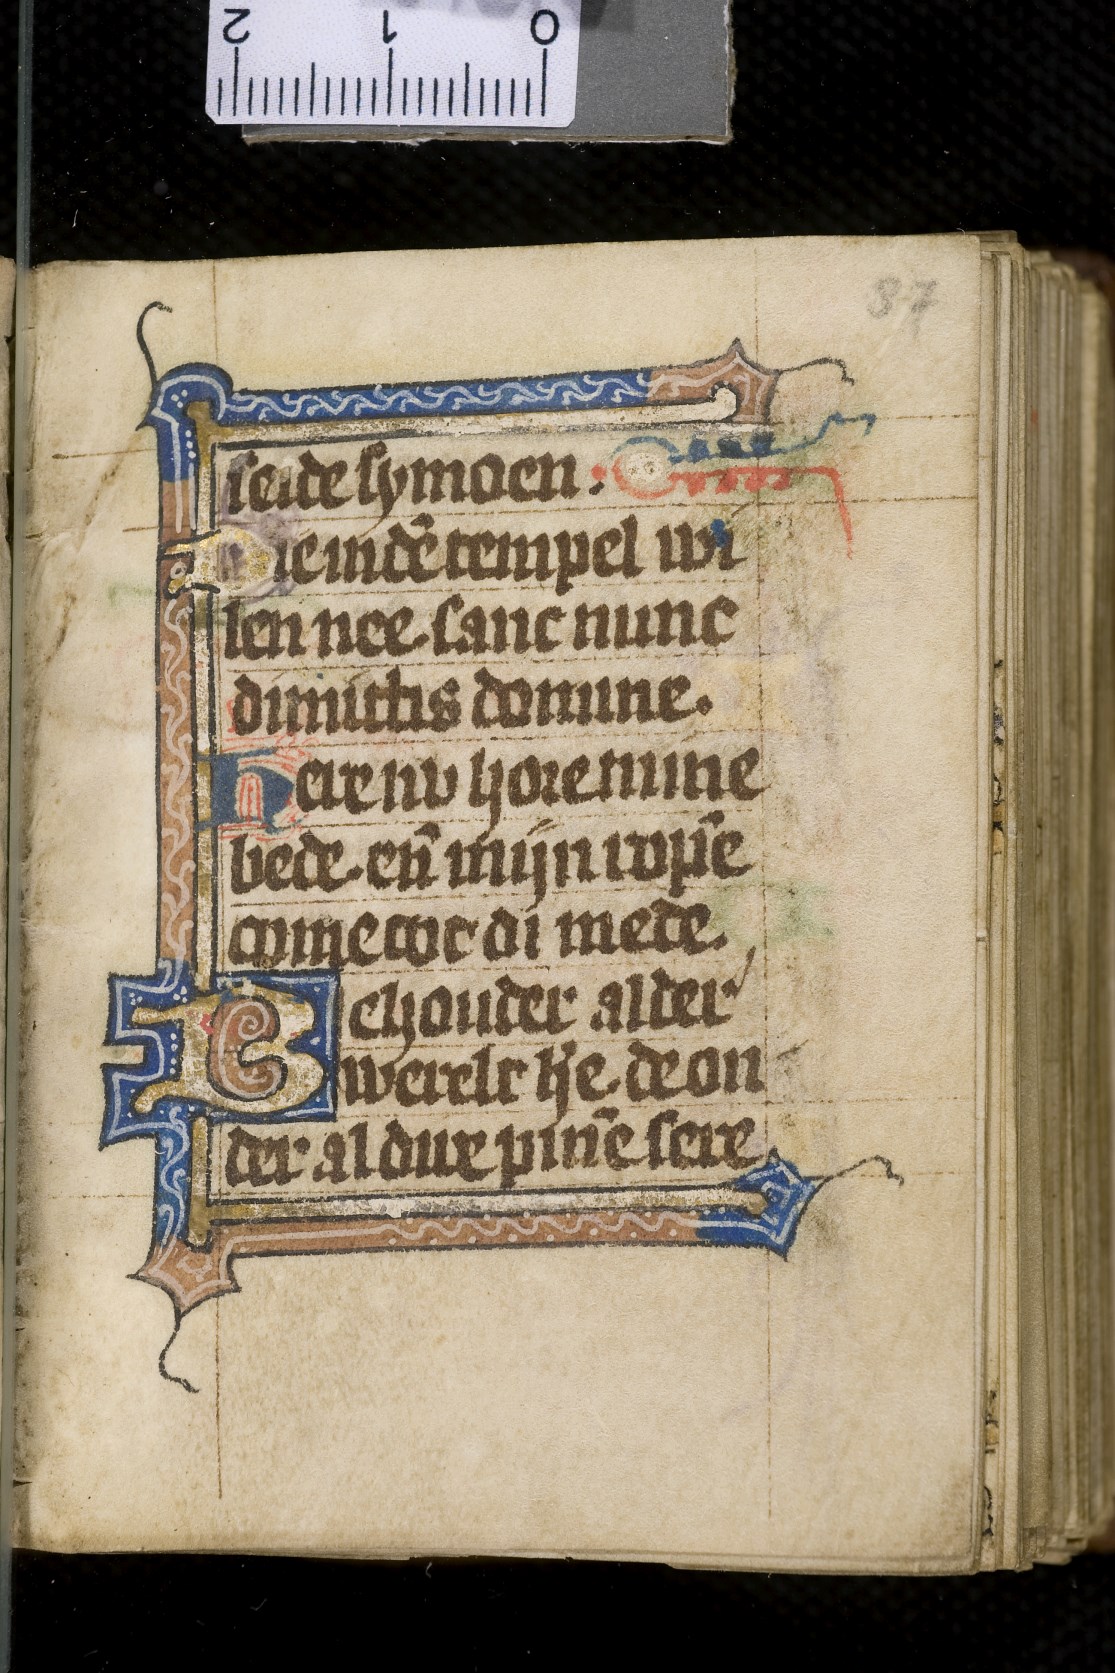 2 1 0
37
seide symoen.
Die indē tempel wi
len nee. sanc nunc
dimittis domine.
Here nv hore mine
bede. en̄ mijn rop̄e
come tot di mede.
Behouder alder
werelt h̄e. de on
der al dire pin̄e sere